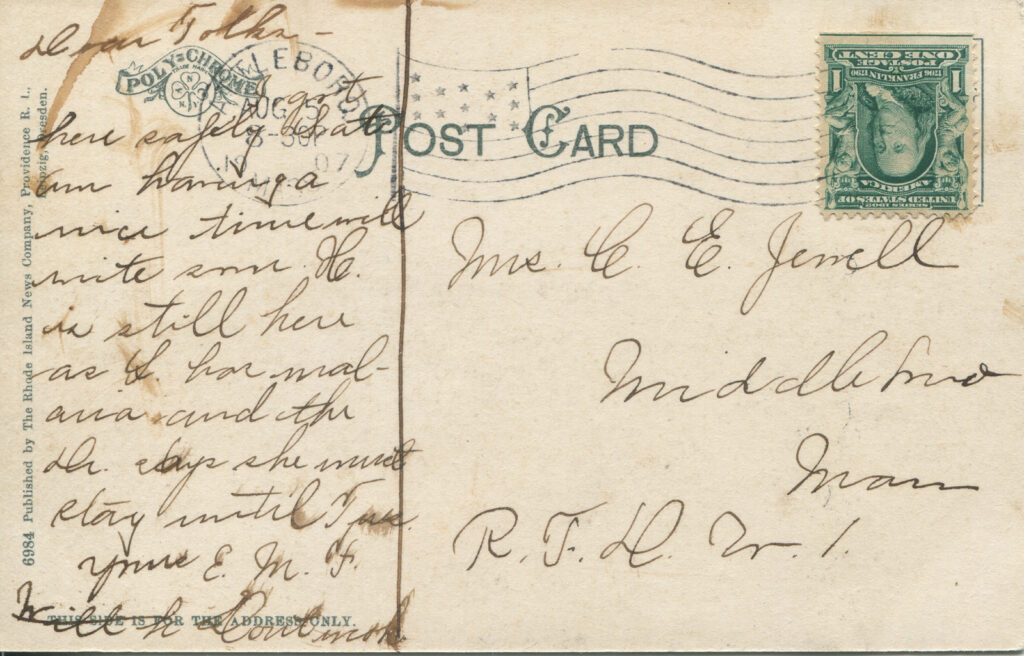 Dear Folks -
POLY-CHROME
TRADE MARK
got
here safely that
am having a
nice time will
write soon. H.
is still here
as S. has mal-
aria and the
Dr. says she must
stay until Tues.
yours E. M. F.
THIS SIDE IS FOR THE ADDRESS ONLY.
6984 Published by The Rhode Island News Company, Providence R. I.,
Leipzig, Dresden.
LEBORO
AUG 19
8-30P
07
POST CARD
SERIES 1902
UNITED STATES OF
AMERICA
1706 FRANKLIN 1790
POSTAGE
1 ONE CENT 1
Mrs. C. E. Jewell
Middleboro
Mass
R. F. D. No. 1.